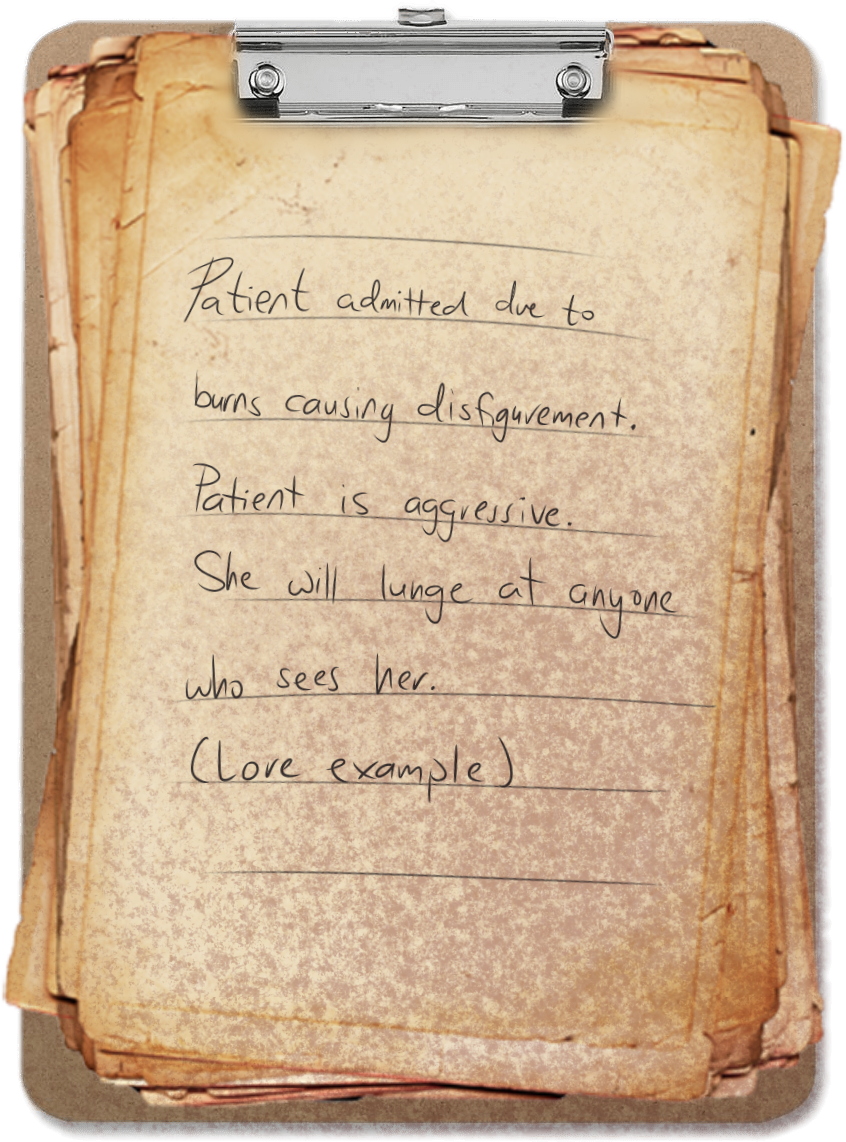 Patient admitted due to
burns causing disfigurement.
Patient is aggressive.
She will lunge at anyone
who sees her.
(Lore example)